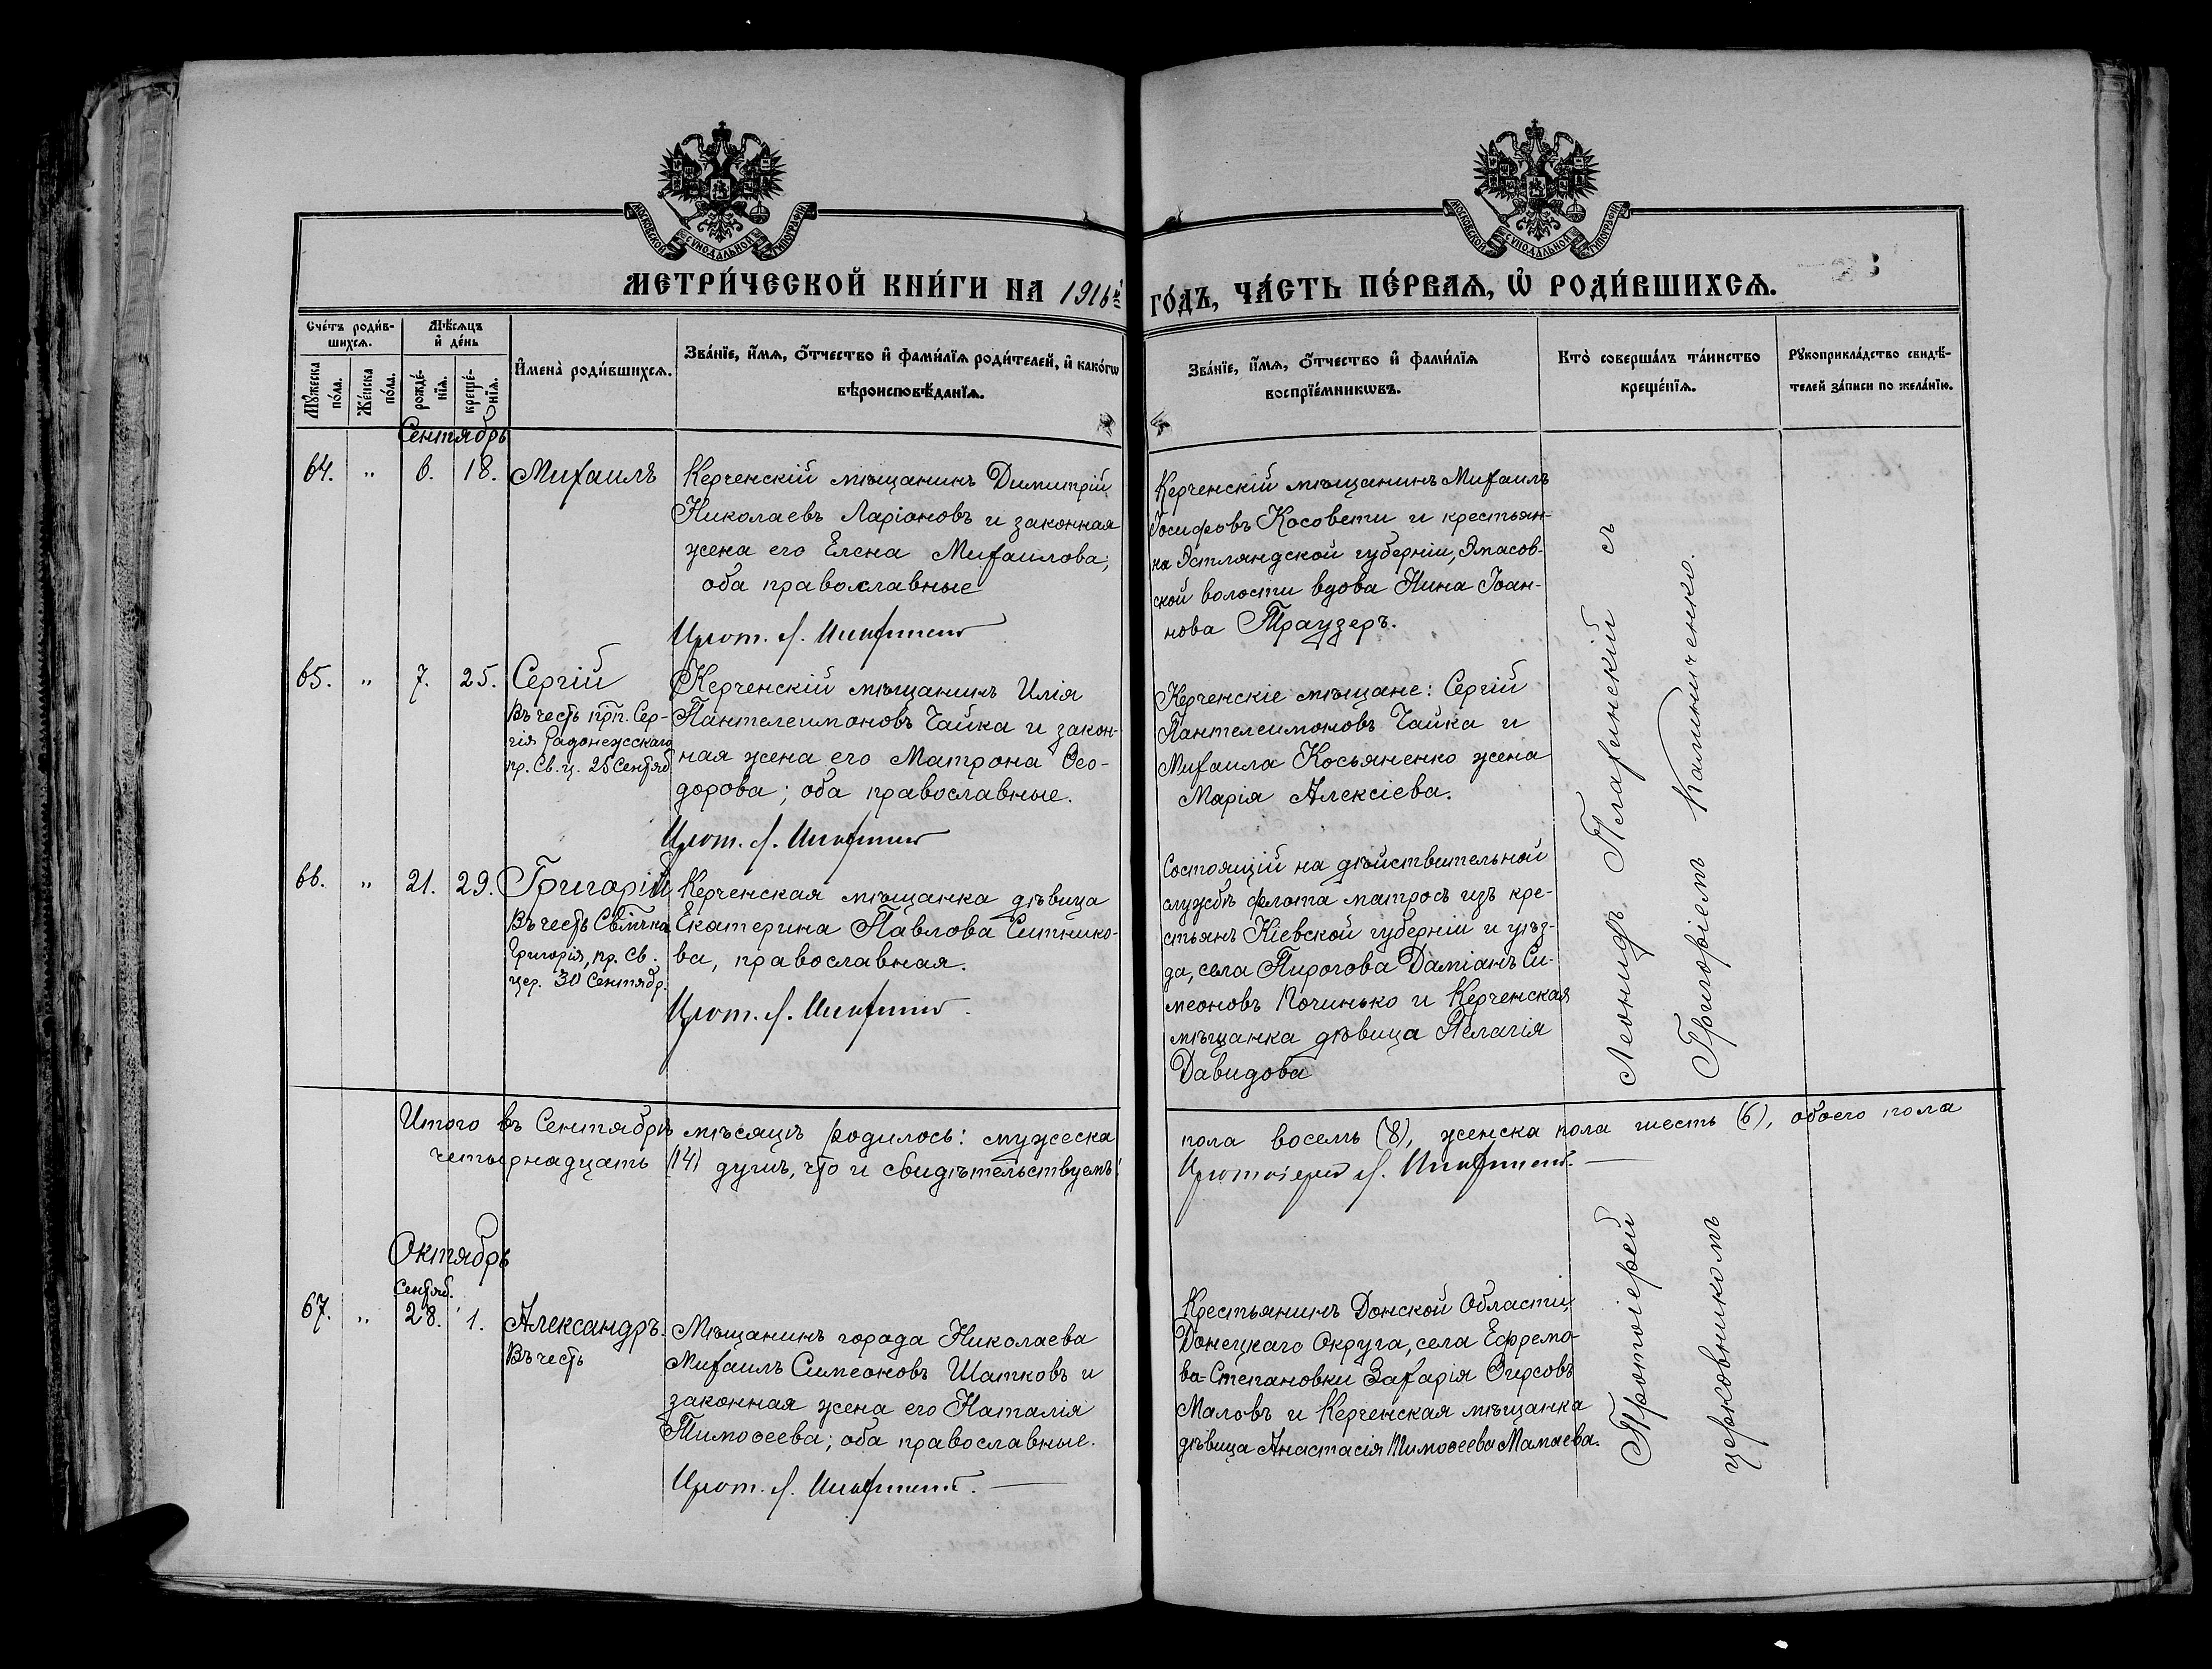 МОСКОВСКОЙ СѴНОДАЛЬНОЙ ТИПОГРАФІИ
МОСКОВСКОЙ СѴНОДАЛЬНОЙ ТИПОГРАФІИ
МЕТРИ́ЧЕСКОЙ КНИ́ГИ НА 1916й ГО́ДЪ, ЧА́СТЬ ПЕ́РВАѦ, Ѡ҆ РОДИ́ВШИХСѦ.
Сче́тъ роди́в-
шихсѧ.
Мꙋ́жеска по́ла.
Же́нска по́ла.
Мѣ́сѧцъ
и҆ де́нь
рожде́-
нїѧ.
креще́-
нїѧ.
И҆мена̀ роди́вшихсѧ.
Зва́нїе, и҆́мѧ, ѻ҆́тчество и҆ фами́лїѧ роди́телей, и҆ како́гѡ
вѣроисповѣ́данїѧ.
Зва́нїе, и҆́мѧ, ѻ҆́тчество и҆ фами́лїѧ
воспрїе́мникѡвъ.
Кто̀ соверша́лъ та́инство
креще́нїѧ.
Рꙋкоприкла́дство свидѣ́-
телей за́писи по жела́нїю.
Сентябрь
64. „ 6. 18. Михаилъ
Керченскій мѣщанинъ Димитрій
Николаевъ Ларіоновъ и законная
жена его Елена Михаилова;
оба православные
Прот.
Керченскій мѣщанинъ Михаилъ
Іосифовъ Косовети и крестьян-
ка Эстляндской губерніи, Эмасов-
ской волости вдова Нина Іоан-
нова Траузеръ.
65. „ 7. 25. Сергій
Въ честь прп. Сер-
гія Радонежскаго
пр. Св. ц. 25 Сентяб
Керченскій мѣщанинъ Илія
Пантелеимоновъ Чайка и закон-
ная жена его Матрона Ѳео-
дорова; оба православные.
Прот.
Керченскіе мѣщане: Сергій
Пантелеимоновъ Чайка и
Михаила Косьяненко жена
Марія Алексіева.
66. „ 21. 29. Григорій
Въ честь Свмчка
Григорія, пр. Св.
цер. 30 Сентябр.
Керченская мѣщанка дѣвица
Екатерина Павлова Ситнико-
ва, православная.
Прот.
Состоящій на дѣйствительной
службѣ флота матросъ изъ кре-
стьянъ Кіевской губерніи и уѣз-
да, села Пирогова Даміанъ Си-
меоновъ Починько и Керченская
мѣщанка дѣвица Пелагія
Давидова
Итого въ Сентябрѣ мѣсяцѣ родилось: мужеска пола восемь (8), женска пола шесть (6), обоего пола
четырнадцать (14) душъ, что и свидѣтельствуемъ: Протоіерей
Октябрь
Сентяб.
67. „ 28. 1. Александръ.
Въ честь
Мѣщанинъ города Николаева
Михаилъ Симеоновъ Шатковъ и
законная жена его Наталія
Тимоѳеева; оба православные.
Прот.
Крестьянинъ Донской Области,
Донецкаго Округа, села Ефремо-
ва-Степановки Захарія Ѳирсовъ
Маловъ и Керченская мѣщанка
дѣвица Анастасія Тимоѳеева Мамаева.
Протоіерей Леонидъ Пларинскій съ
церковникомъ Григоріемъ Калиниченко.